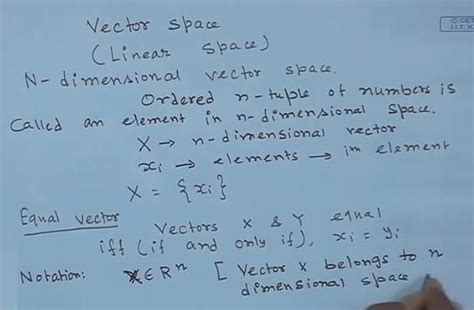 Vector space
(Linear space)
N-dimensional vector space.
Ordered n-tuple of numbers is
Called an element in n-dimensional space.
X → n-dimensional vector
xi → elements → im element
X = {xi}
Equal vector
Vectors X & Y equal
iff (if and only if), xi = yi
Notation: X ∈ Rⁿ [Vector X belongs to n
dimensional space
© CET
I.I.T. K